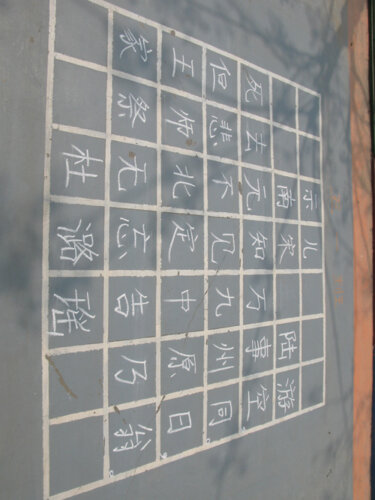 示儿
南宋 陆游
死去元知万事空
但悲不见九州同。
王师北定中原日
家祭无忘告乃翁。
杜潞瑶